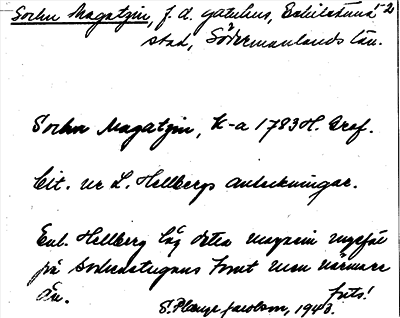 Sochn Magatzin, f. d. gatuhus, Eskilstuna-2
stad, Södermanlands län.
Sochn Magatzin, K-a 1783 H. Graf.
Cit. ur L. Hellbergs anteckningar.
Enl. Hellberg låg detta magasin ungefär
på Sockenstugans tomt men närmare
ån. forts!
S. Plange Jacobson, 1943.